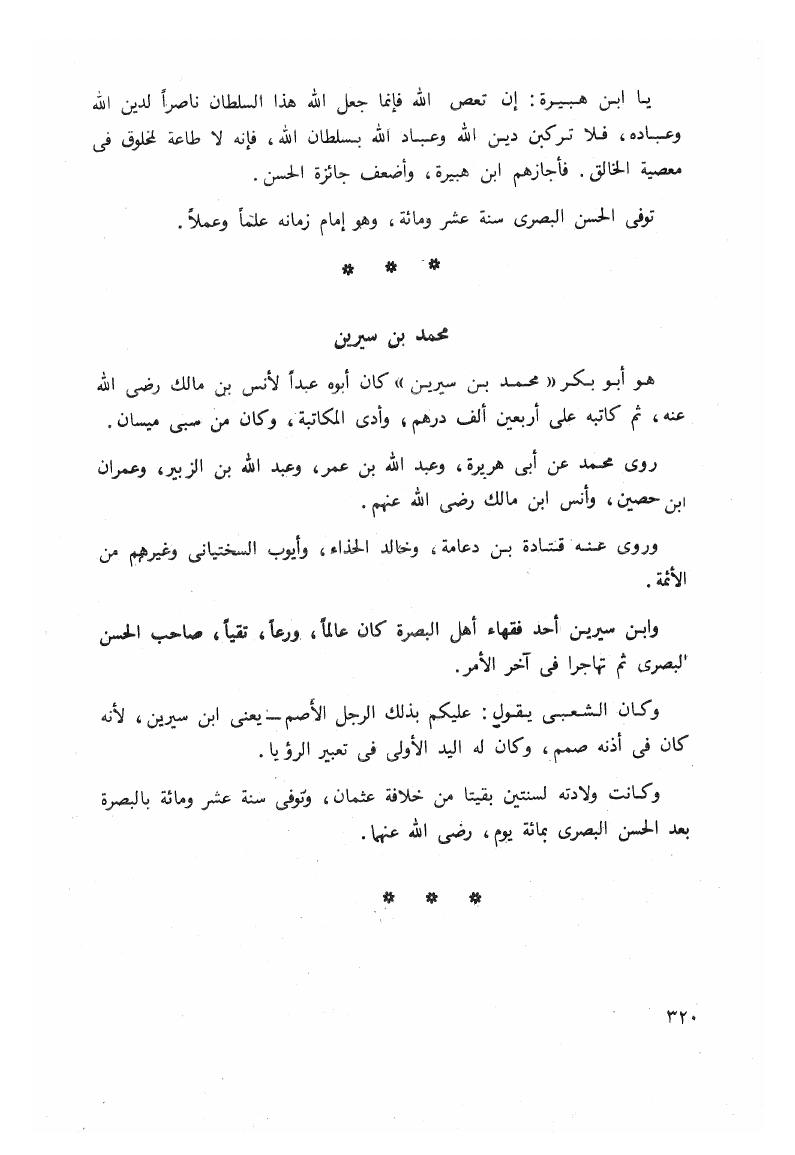 يا ابن هبيرة : إن تعص الله فإنما جعل الله هذا السلطان ناصراً لدين الله
وعباده ، فلا تركبن دين الله وعباد الله بسلطان الله ، فإنه لا طاعة لمخلوق فى
معصية الخالق . فأجازهم ابن هبيرة ، وأضعف جائزة الحسن .
توفى الحسن البصرى سنة عشر ومائة ، وهو إمام زمانه علماً وعملاً .
* * *
محمد بن سيرين
هو أبو بكر « محمد بن سيرين » كان أبوه عبداً لأنس بن مالك رضى الله
عنه ، ثم كاتبه على أربعين ألف درهم ، وأدى المكاتبة ، وكان من سبى ميسان .
روى محمد عن أبى هريرة ، وعبد الله بن عمر ، وعبد الله بن الزبير ، وعمران
ابن حصين ، وأنس ابن مالك رضى الله عنهم .
وروى عنه قتادة بن دعامة ، وخالد الحذاء ، وأيوب السختيانى وغيرهم من
الأئمة .
وابن سيرين أحد فقهاء أهل البصرة كان عالماً ، ورعاً ، تقياً ، صاحب الحسن
البصرى ثم تهاجرا فى آخر الأمر .
وكان الشعبى يقول : عليكم بذلك الرجل الأصم ــ يعنى ابن سيرين ، لأنه
كان فى أذنه صمم ، وكان له اليد الأولى فى تعبير الرؤيا .
وكانت ولادته لسنتين بقيتا من خلافة عثمان ، وتوفى سنة عشر ومائة بالبصرة
بعد الحسن البصرى بمائة يوم ، رضى الله عنهما .
* * *
٣٢٠